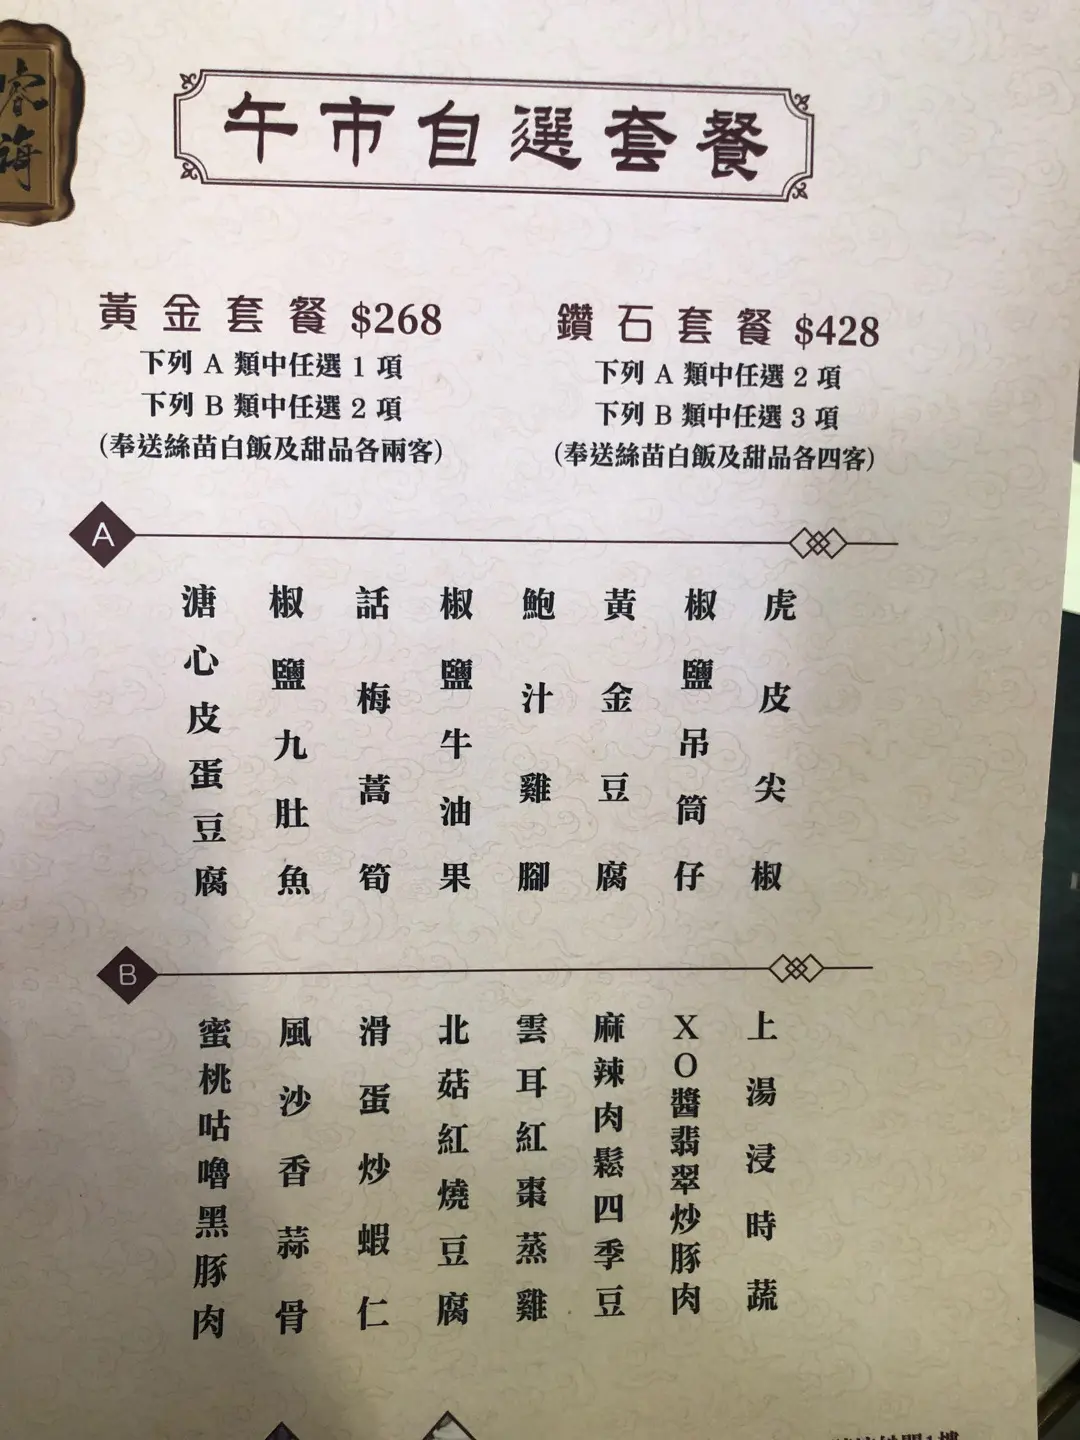 午市自選套餐
黃金套餐 $268
下列 A 類中任選 1 項
下列 B 類中任選 2 項
(奉送絲苗白飯及甜品各兩客)
鑽石套餐 $428
下列 A 類中任選 2 項
下列 B 類中任選 3 項
(奉送絲苗白飯及甜品各四客)
A
虎皮尖椒
椒鹽吊筒仔
黃金豆腐
鮑汁雞腳
椒鹽牛油果
話梅萵筍
椒鹽九肚魚
溏心皮蛋豆腐
B
上湯浸時蔬
XO醬翡翠炒豚肉
麻辣肉鬆四季豆
雲耳紅棗蒸雞
北菇紅燒豆腐
滑蛋炒蝦仁
風沙香蒜骨
蜜桃咕嚕黑豚肉